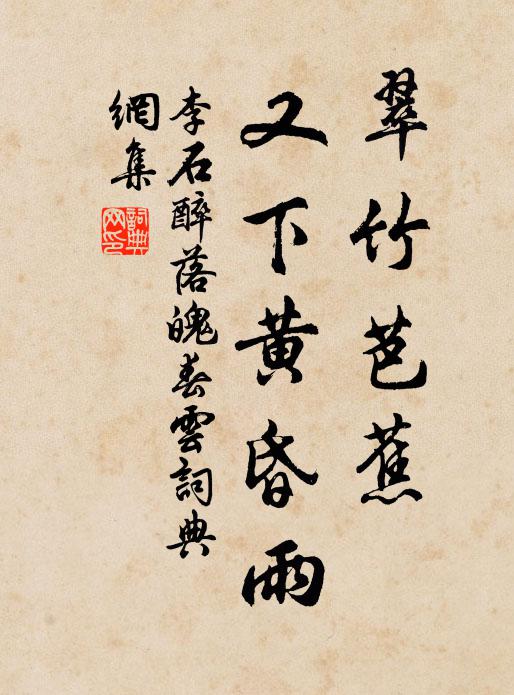 翠竹芭蕉
又下黄昏雨
李石醉落魄春雲詞典
網集
詞典
网印